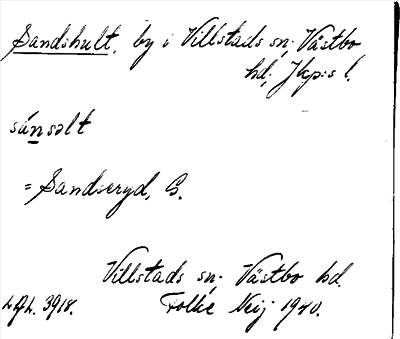 Sandshult, by i Villstads sn; Västbo
hd; Jkp:s l.
sánsəlt
= Sandseryd, G.
Villstads sn. Västbo hd.
Folke Neij 1940.